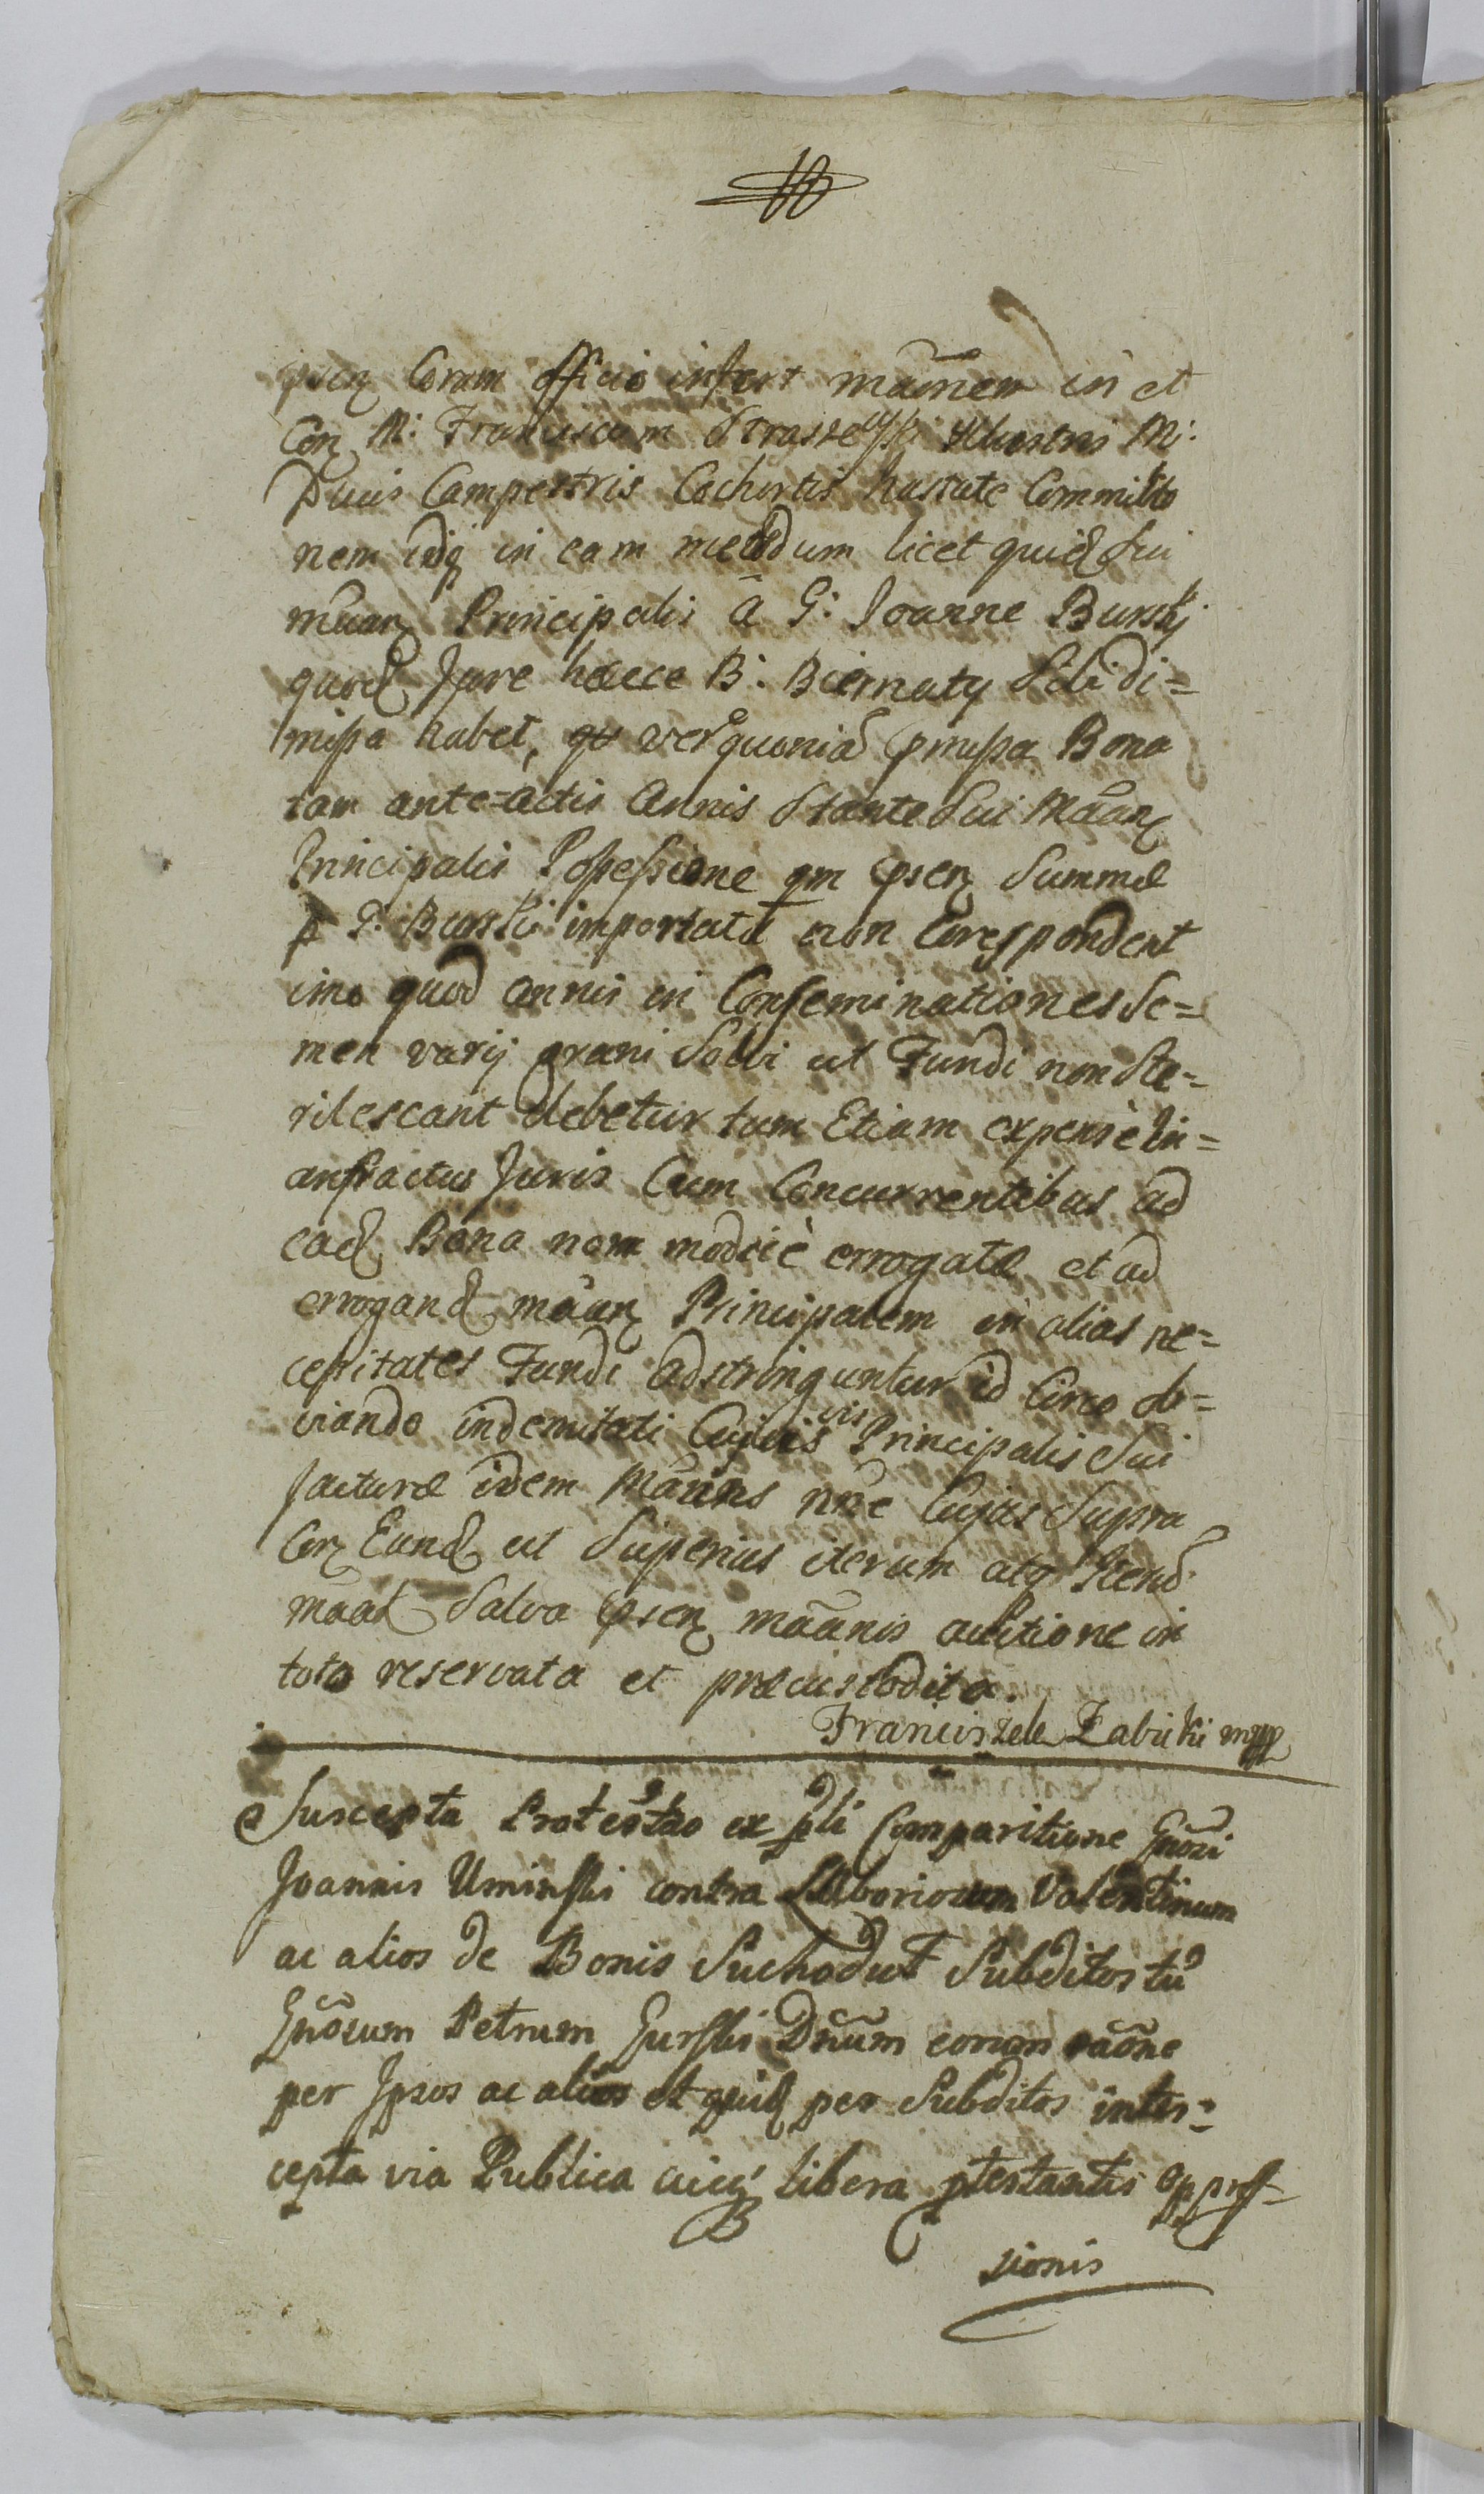 psen Coram officio infert mãnem in et
Con M: Franciscum Straszewski Illustris M:
Ducis Campestris Cohortis hastatæ Commilito
nem idq in eam methodum licet quid Sui
mãan Principalis â G: Joanne Burskj
quod Jure hæcce B: Biernaty Sibi di=
missa habet, vero quoniã pmissa Bona
tam ante=actis Annis Stante Sui Mãan
Principalis Possessione qm psen Summæ
p G: Burski importatæ non Corespondent
imo quod annis in Conseminationes Se=
men varij grani Solvi ut Fundi non Ste=
rilescant debetur tum Etiam expensè in
anfractus Juris Cum Concurrentibus ad
ead Bona non modicè errogatæ et ad
errogand mãan Principalem in alias ne=
cessitates Fundi adstringuntur id Circo ob=
viando indemnitati Cujusvis Principalis Sui
Jacturæ idem Mãnns nne Cujus Supra
Con Eund ut Superius iterum atq Itend
mãat Salva psen mãanis auctione in
toto reservata et præcustodita.
Franciszek Zabicki mpp
Suscepta Protestao ex pli Comparitione Gnosi
Joannis Uminski contra Laboriosum Valentinum
ac alios de Bonis Suchodut Subditos tũ
Gnosum Petrum Gurski Dnum eorum raõne
per Ipsos ac alios et quid per Subditos inter=
cepta via Publica cuicq libera ptestantis oppres=
sionis